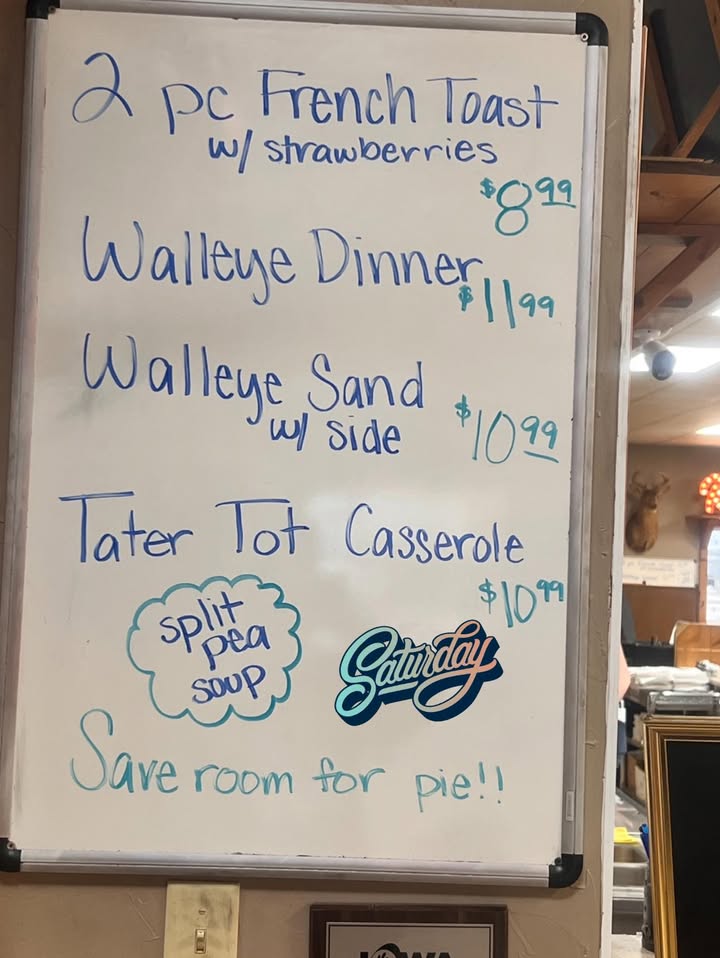 2 pc French Toast
w/ strawberries
$8.99
Walleye Dinner
$11.99
Walleye Sand
w/ side
$10.99
Tater Tot Casserole
$10.99
split
pea
soup
Saturday
Save room for pie!!
IOWA